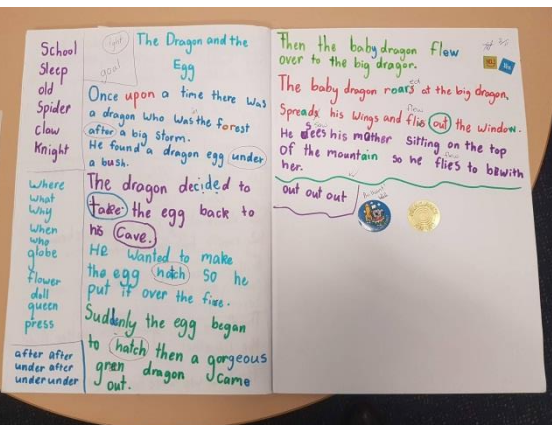 School
Sleep
old
Spider
claw
Knight
where
what
why
when
who
globe
y
flower
doll
queen
press
after after
under after
under under
light
goal
The Dragon and the
Egg
Once upon a time there was
a dragon who was the forest
after a big storm.
He found a dragon egg under
a bush.
The dragon decided to
take the egg back to
his Cave.
He wanted to make
the egg hatch so he
put it over the fire.
Suddunly the egg began
to hatch then a gorgeous
gren dragon came
out.
Then the baby dragon flew
over to the big dragon.
The baby dragon roars ed at the big dragon,
Spreads his wings and flies out the window.
He Sees his mother sitting on the top
of the mountain so he flies to be with
her.
out out out